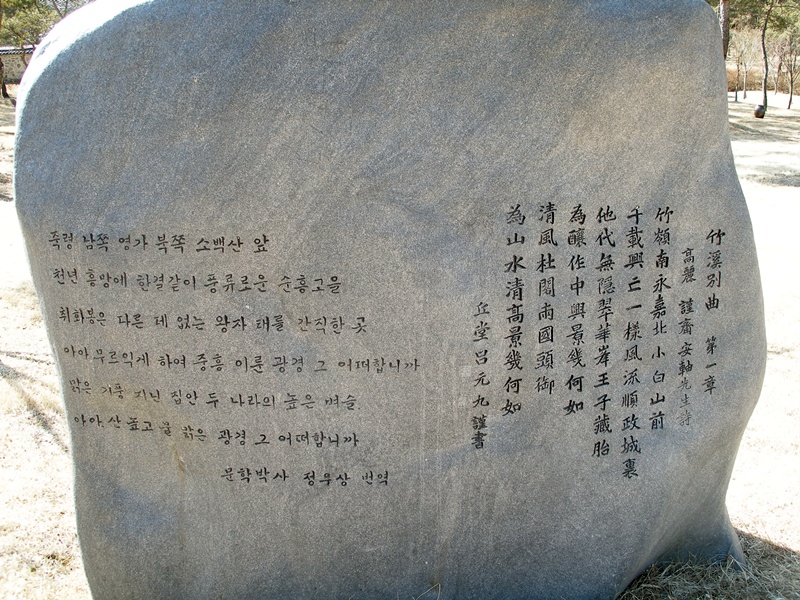 竹溪別曲 第一章
高麗 謹齋安軸先生詩
竹嶺南永嘉北小白山前
千載興亡一樣風流順政城裏
他代無隱翠華峯王子藏胎
為釀作中興景幾何如
清風杜閣兩國頭御
為山水清高景幾何如
丘堂呂元九謹書
죽령 남쪽 영가 북쪽 소백산 앞
천년 흥망에 한결같이 풍류로운 순흥고을
취화봉은 다른 데 없는 왕자 태를 간직한 곳
아아 무르익게 하여 중흥 이룬 광경 그 어떠합니까
맑은 기풍 지닌 집안 두 나라의 높은 벼슬
아아, 산 높고 물 맑은 광경 그 어떠합니까
문학박사 정우상 번역